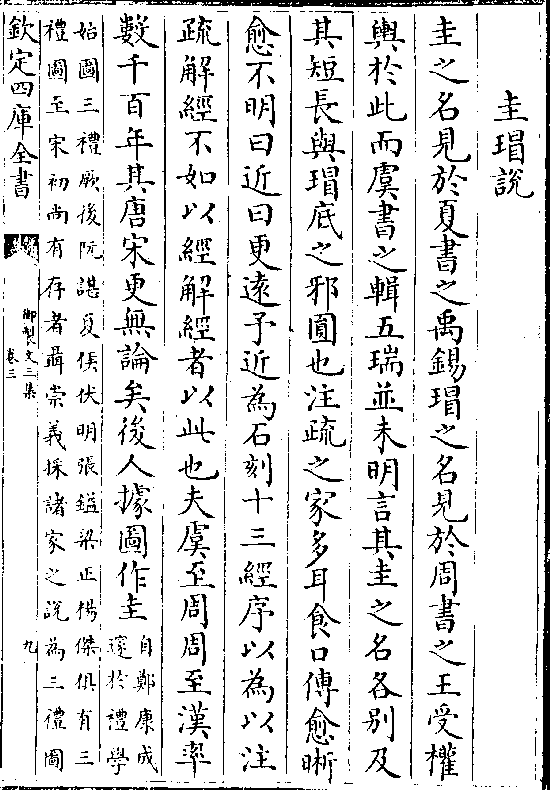 圭瑁說
圭之名見於夏書之禹錫瑁之名見於周書之王受權
輿於此而虞書之輯五瑞並未明言其圭之名各別及
其短長與瑁底之邪圓也注疏之家多耳食口傳愈晰
愈不明曰近曰更遠予近為石刻十三經序以為以注
疏解經不如以經解經者以此也夫虞至周周至漢率
數千百年其唐宋更無論矣後人據圖作圭
自鄭康成
邃於禮學
始圖三禮厥後阮諶夏侯伏明張鎰梁正楊傑俱有三
禮圖至宋初尚有存者聶崇義採諸家之說為三禮圖
欽定四庫全書
御製文三集
卷三
九